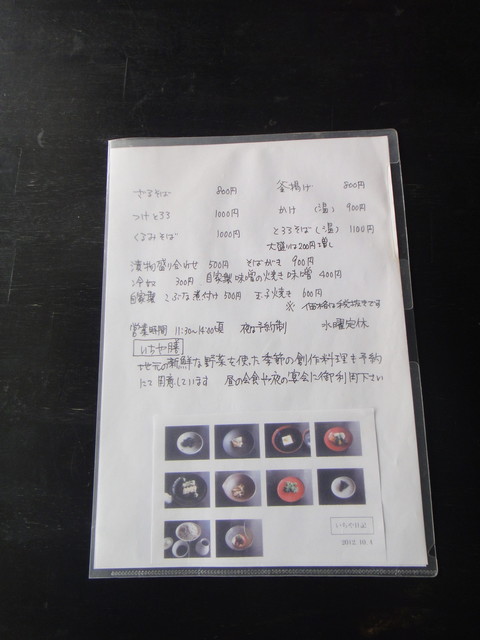 ざるそば 800円 釜揚げ 800円
つけとろろ 1000円 かけ (温) 900円
くるみそば 1000円 とろろそば(温) 1100円
大盛りは200円増し
漬物盛り合わせ 500円 そばがき 900円
冷奴 300円 自家製味噌の焼き味噌 400円
自家製 こぶな煮付け 500円 まぶ焼き 600円
※ 価格は税抜きです
営業時間 11:30~14:00頃 夜は予約制 水曜定休
いちや膳
地元の新鮮な野菜を使った季節の創作料理も予約
にて用意しています 昼の会食や夜の宴会に御利用下さい
いちや日記
2012.10.4